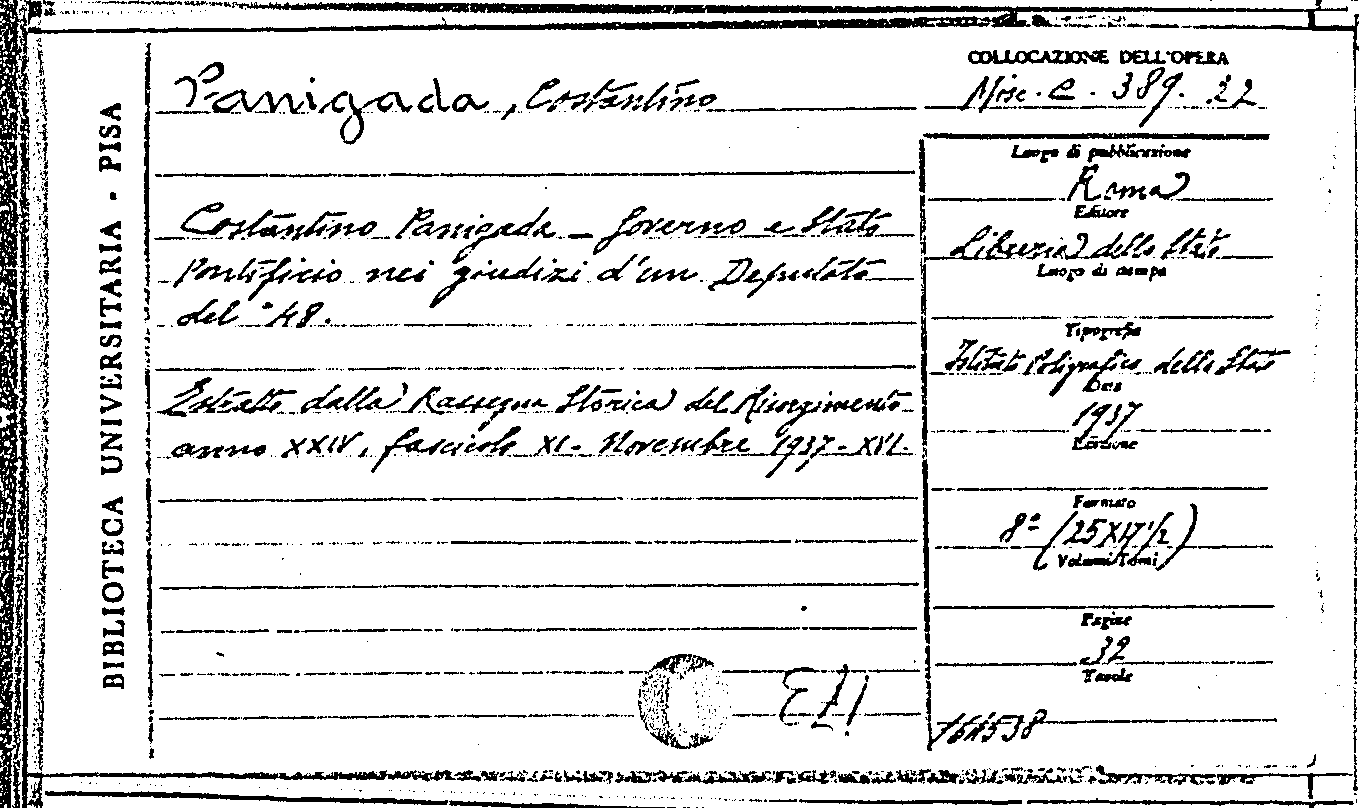 BIBLIOTECA UNIVERSITARIA - PISA
Panigada, Costantino
Costantino Panigada - Governo e Stato
Pontificio nei giudizi d'un Deputato
del '48.
Estratto dalla Rassegna Storica del Risorgimento
anno XXIV, fascicolo XI - Novembre 1937 - XVI.
COLLOCAZIONE DELL'OPERA
Misc. C. 389. 22
Luogo di pubblicazione
Roma
Editore
Libreria dello Stato
Luogo di stampa
Tipografia
Istituto Poligrafico dello Stato
Data
1937
Edizione
Formato
8º (25X17 1/2)
Volumi/Tomi
Pagine
32
Tavole